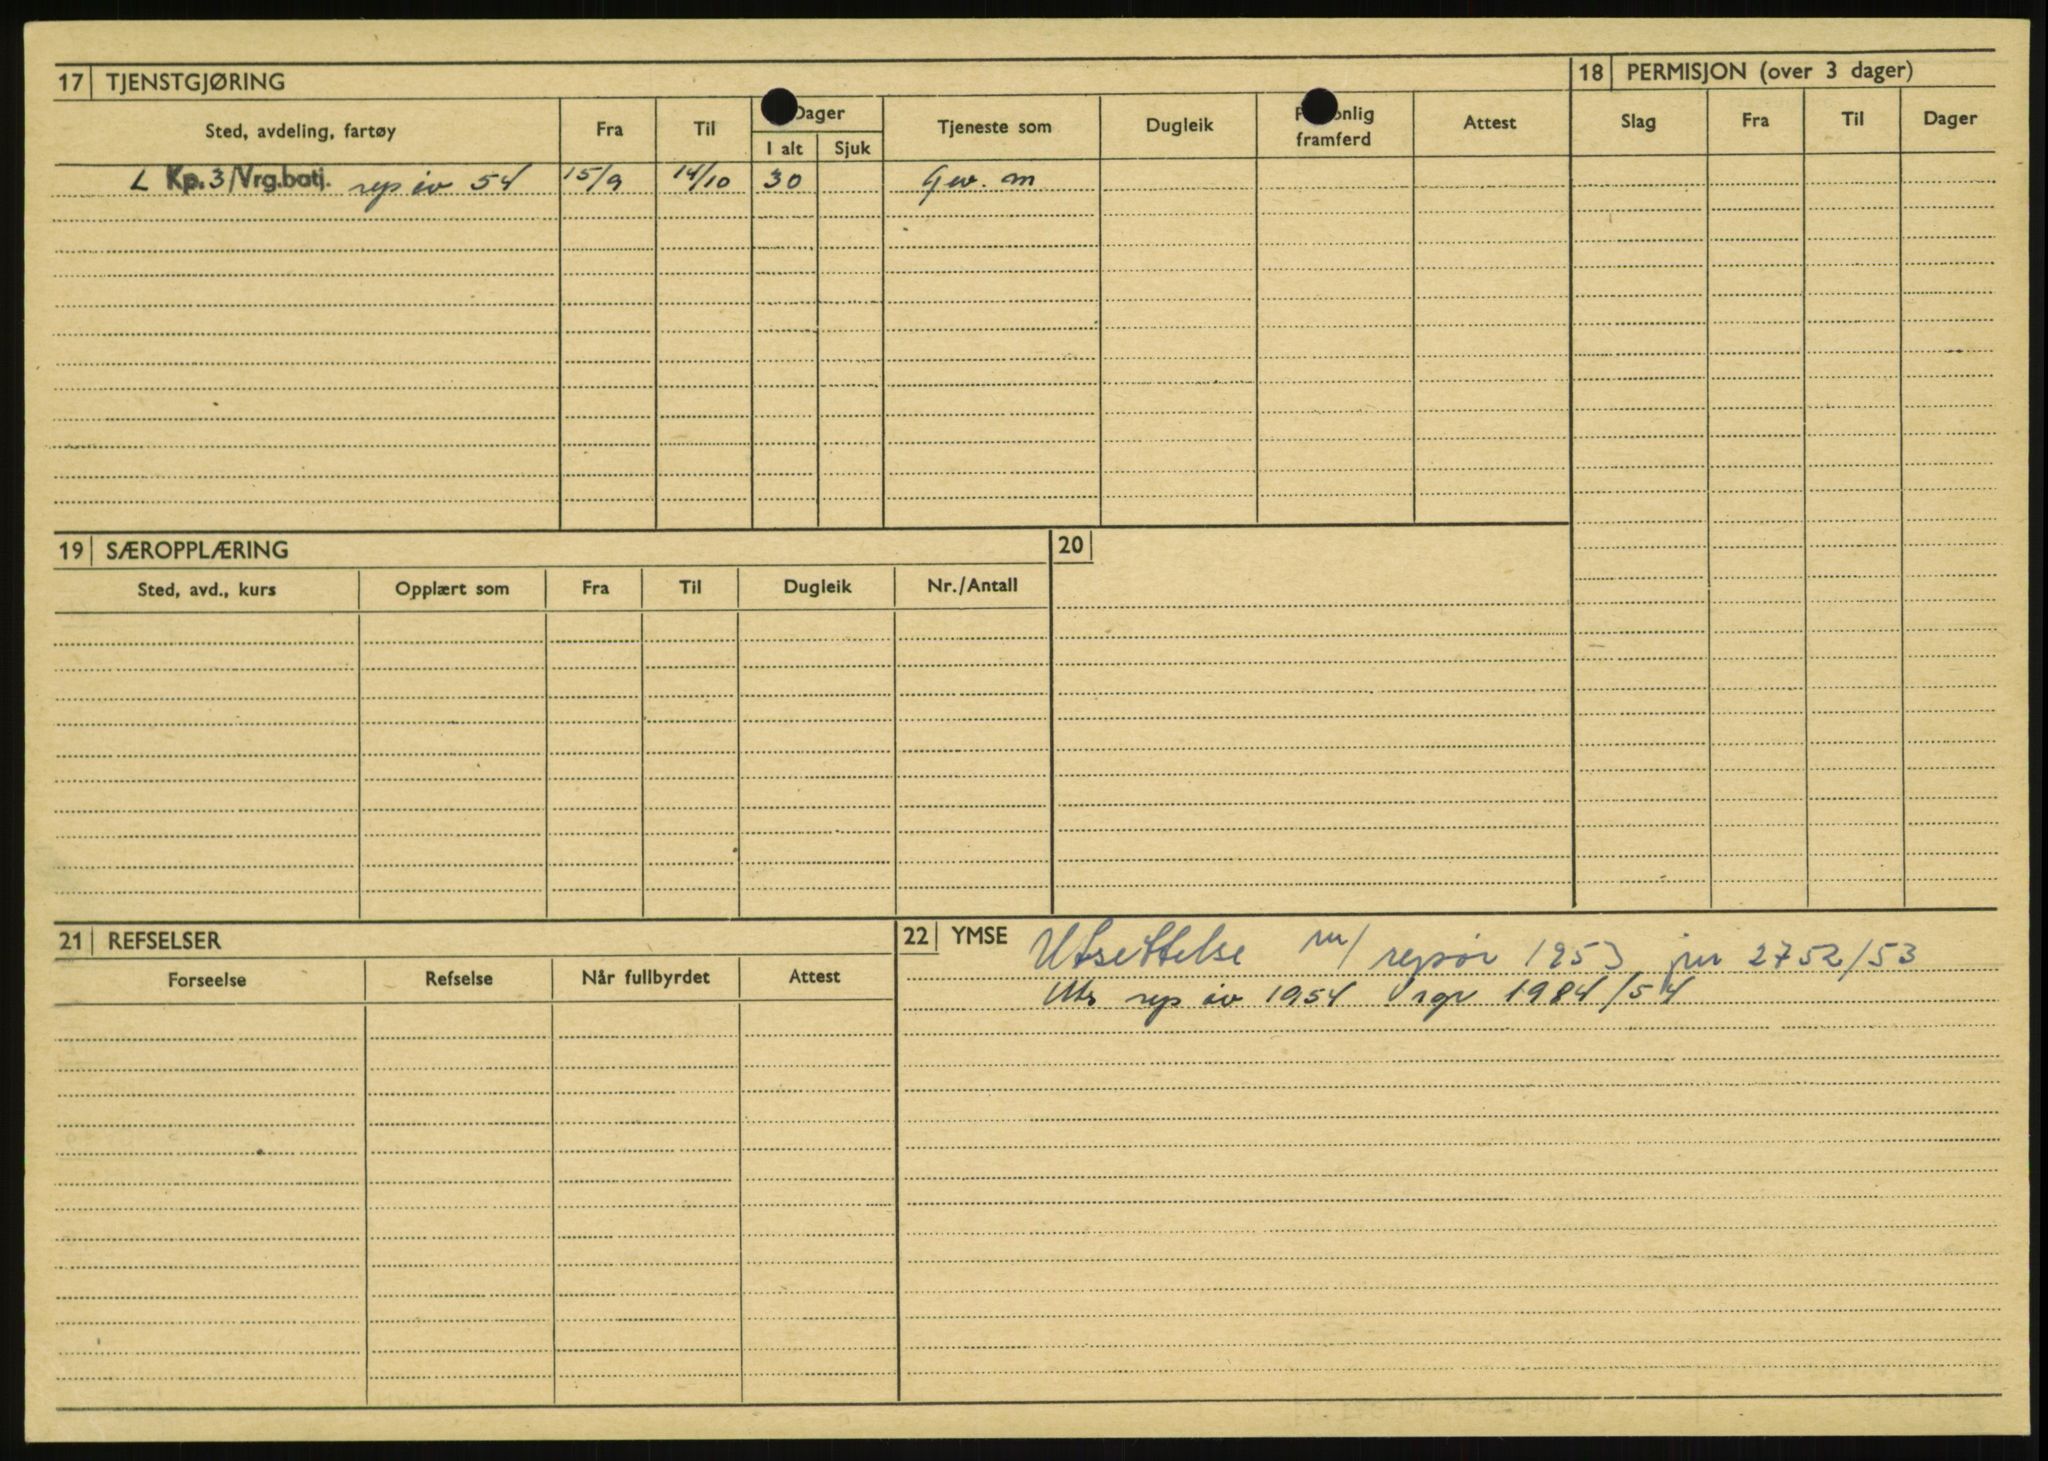 17 TJENSTGJØRING
Sted, avdeling, fartøy Fra Til Dager I alt Sjuk Tjeneste som Dugleik framferd Attest
L Kp.3/Vrg.batj. rep øv 54 15/9 14/10 30 Gev. m
18 PERMISJON (over 3 dager)
Slag Fra Til Dager
19 SÆROPPLÆRING
Sted, avd., kurs Opplært som Fra Til Dugleik Nr./Antall
20
21 REFSELSER
Forseelse Refselse Når fullbyrdet Attest
22 YMSE Utsettelse m/ repøv 1953 jnr 2752/53
rep øv 1954 1984/54